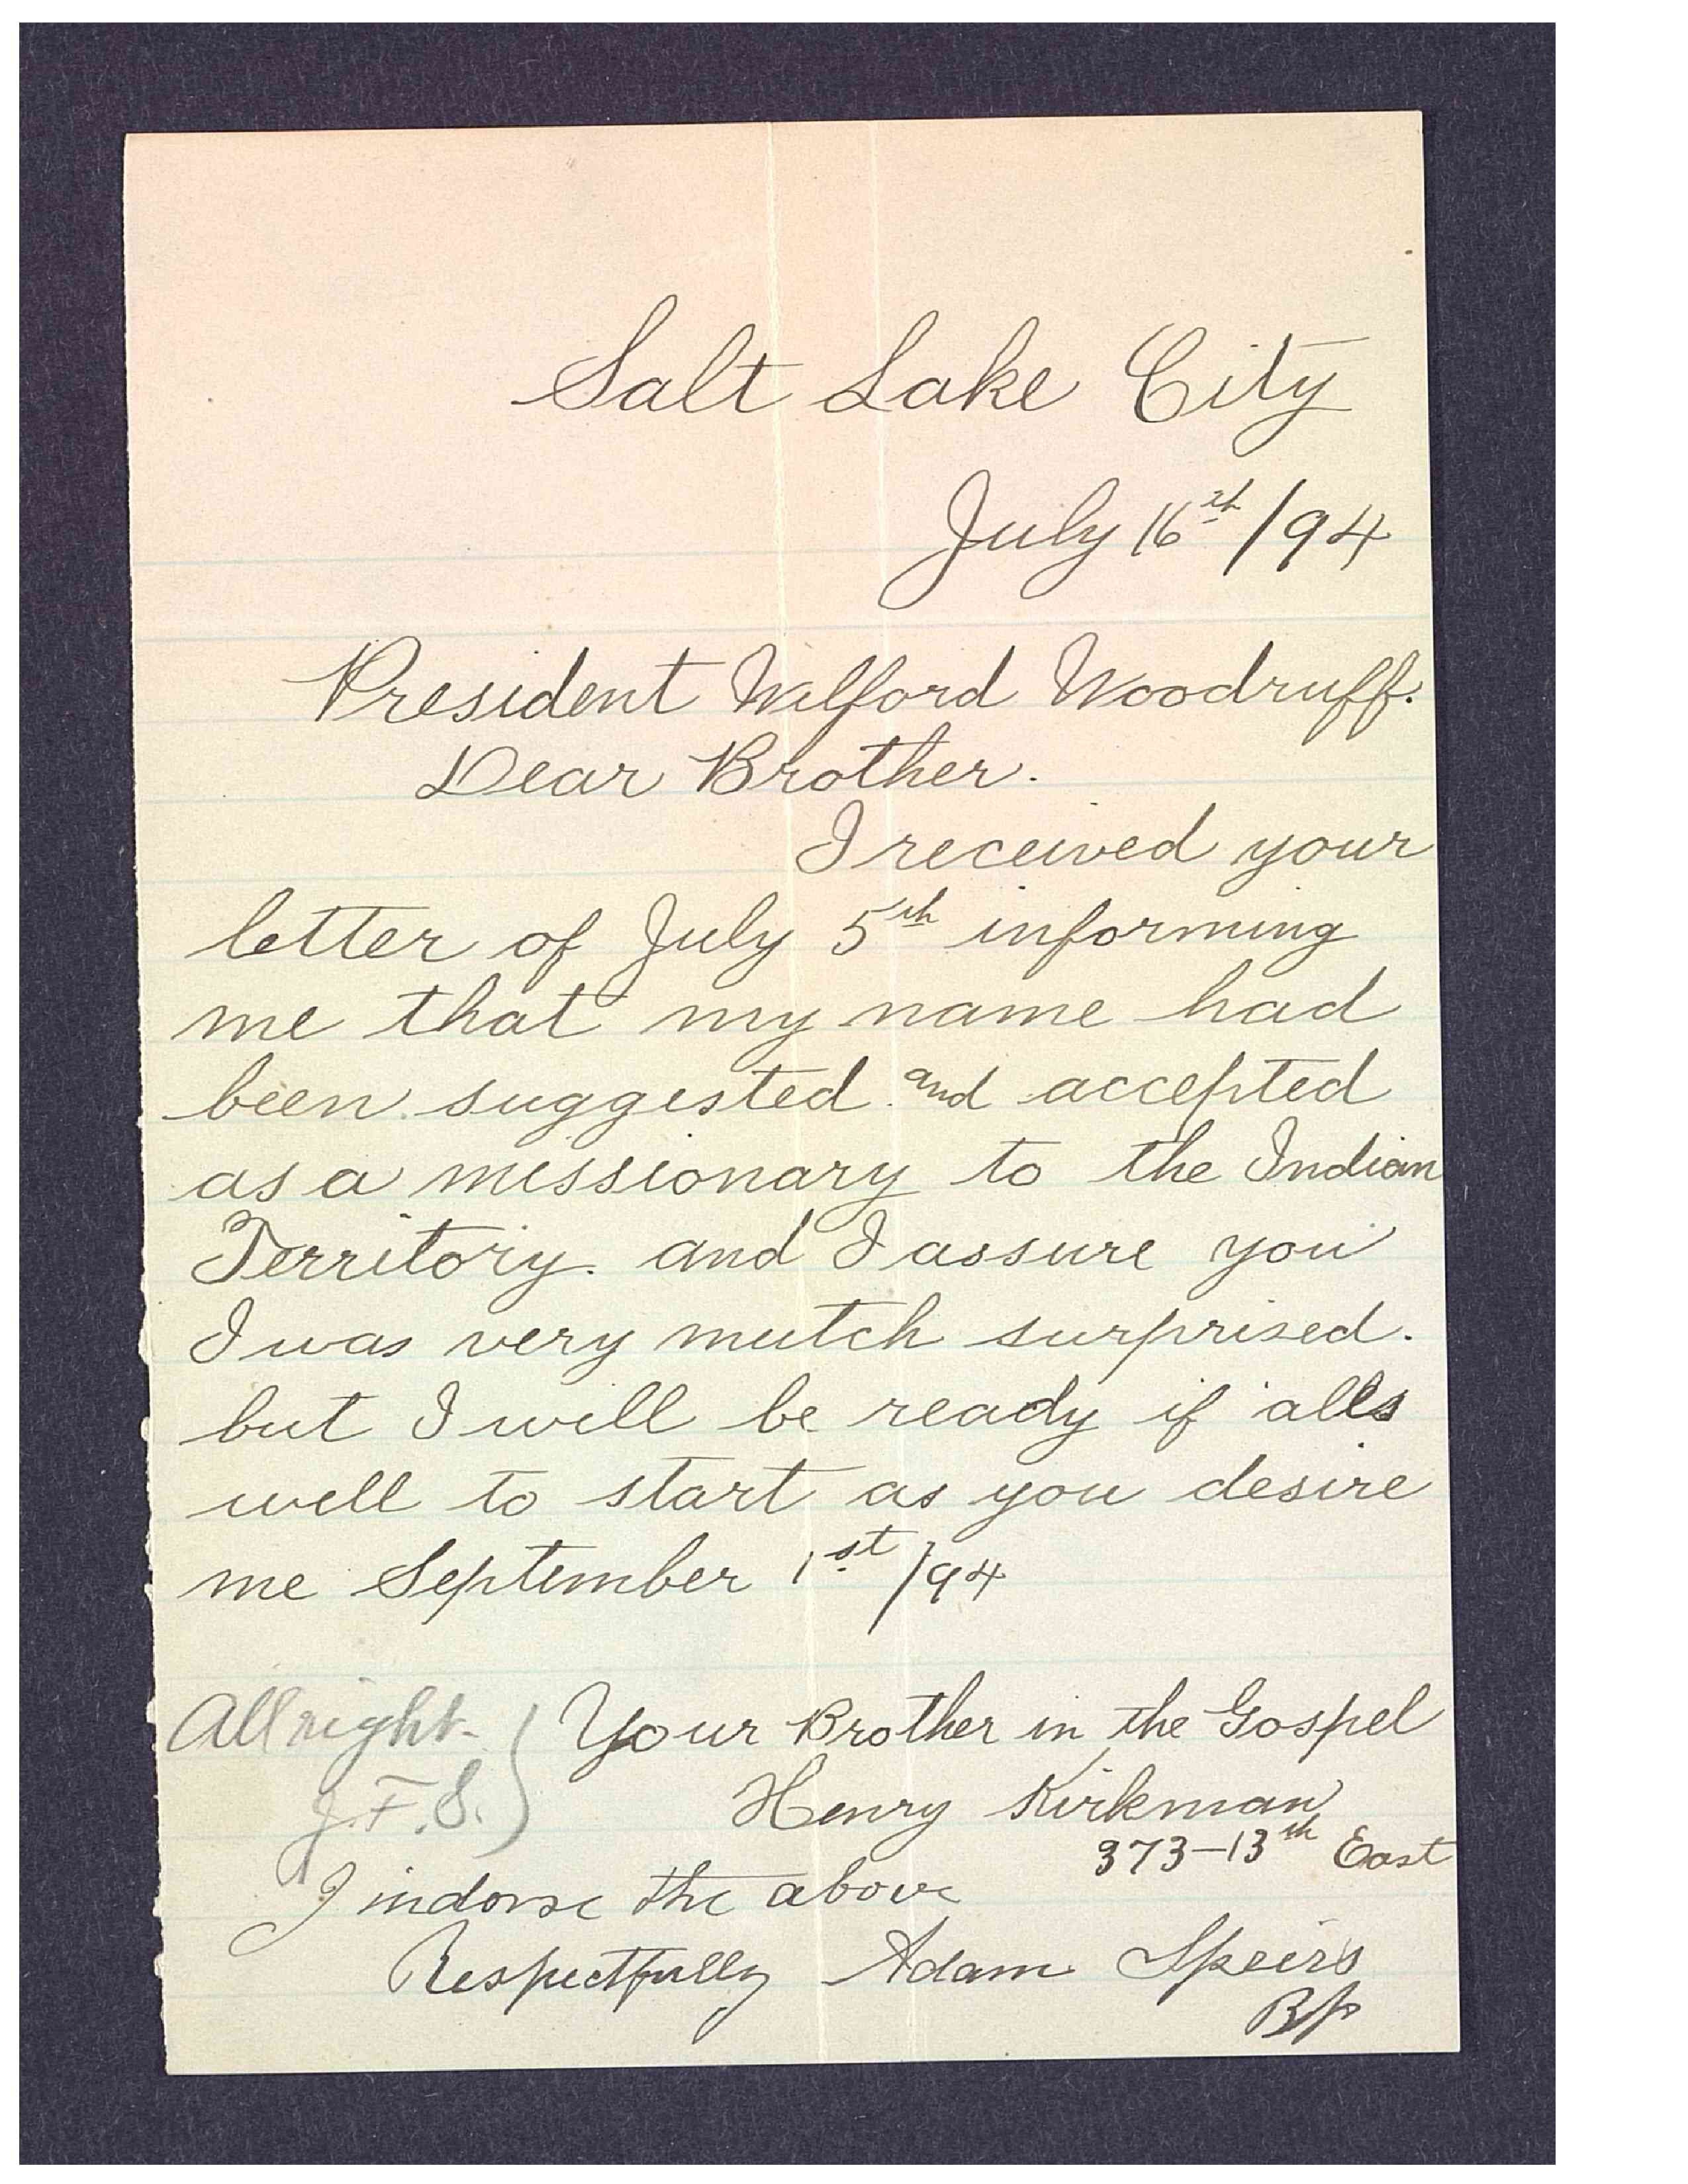 Salt Lake City
July 16th /94
President Wilford Woodruff.
Dear Brother.
I received your
letter of July 5th informing
me that my name had
been suggested and accepted
as a missionary to the Indian
Territory. and I assure you
I was very mutch surprised.
but I will be ready if alls
well to start as you desire
me September 1st /94
All right.
J. F. S.
Your Brother in the Gospel
Henry Kirkman
373-13th East
I indorse the above
Respectfully Adam Speirs
Bp